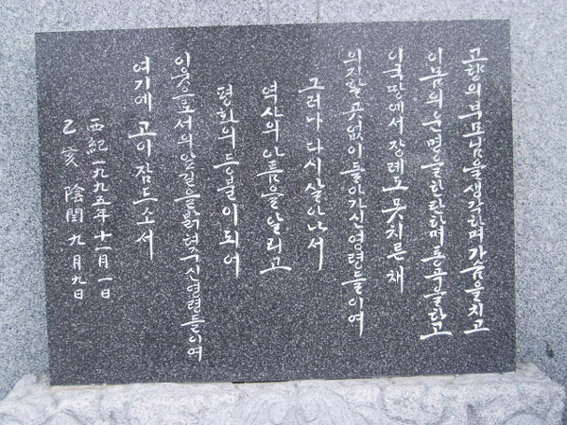 고향의 부모님을 생각하며 가슴을 치고
이 몸의 운명을 한탄하며 통곡을 하고
이국땅에서 장례도 못치른 채
의지할 곳 없이 돌아가신 영령들이여
그러나 다시 살아나서
역사의 아픔을 알리고
평화의 등불이 되어
이웃으로서의 앞길을 밝혀주신 영령들이여
여기에 고이 잠드소서
西紀一九九五年 十一月 一日
乙亥 陰閏 九月 九日